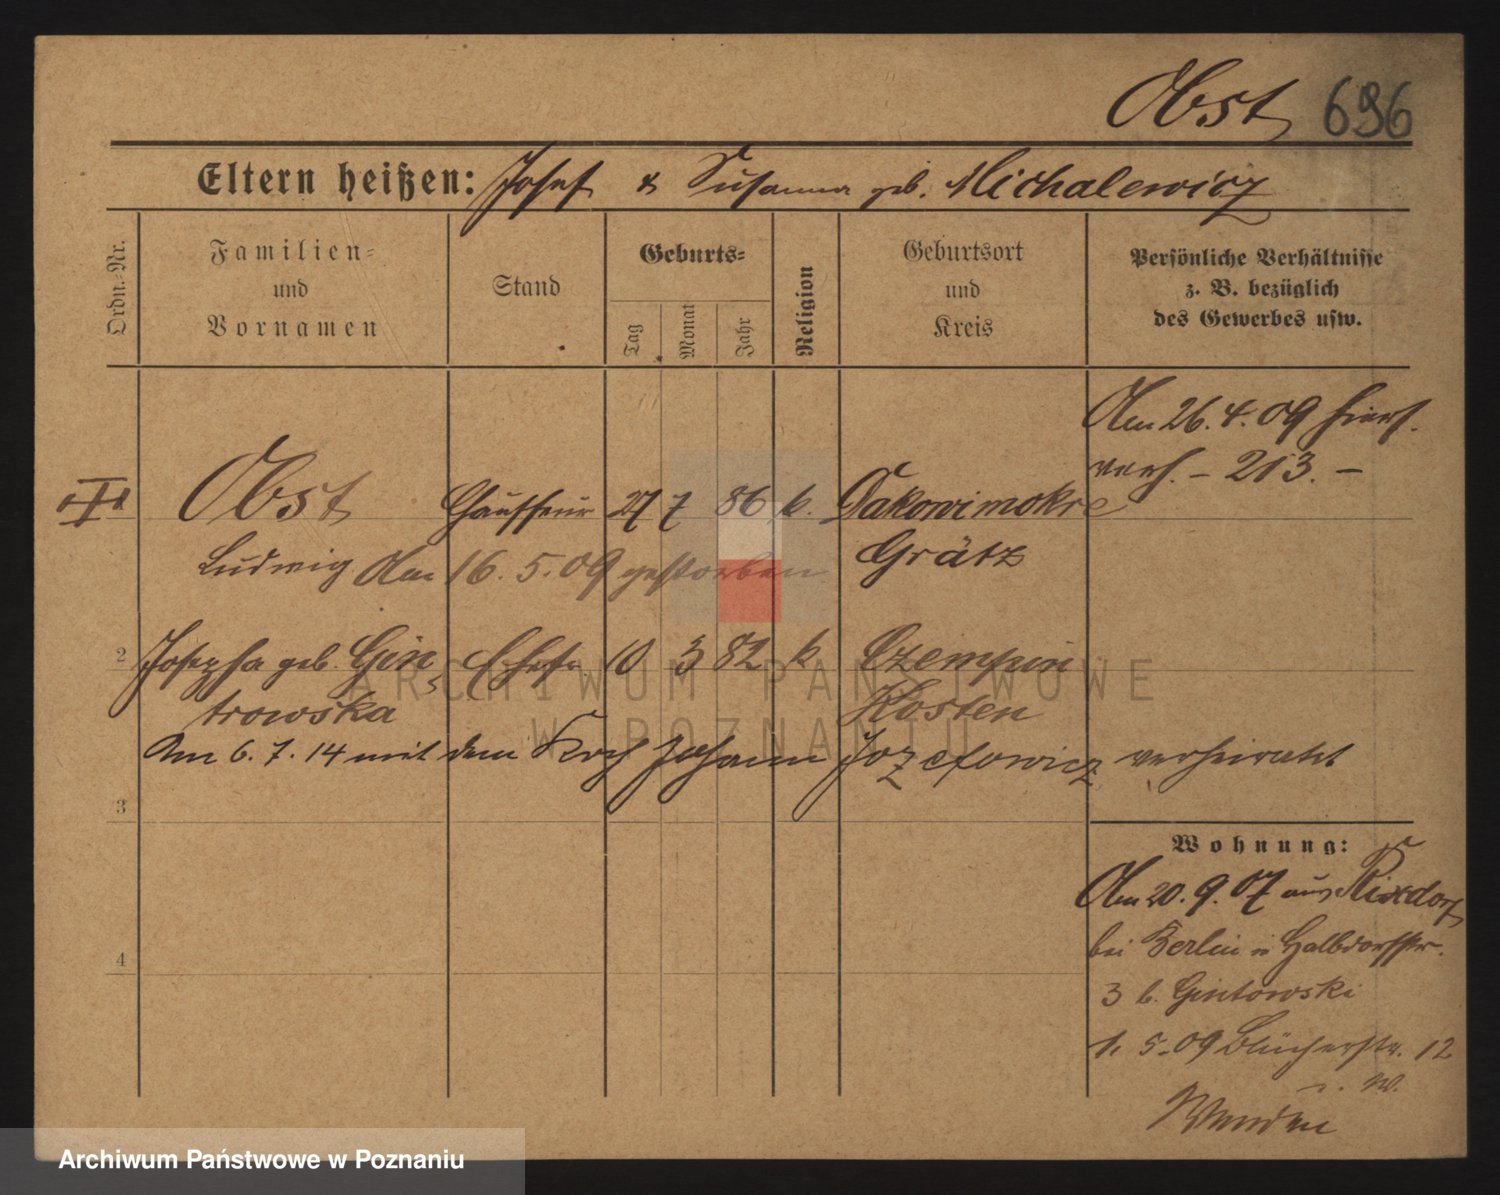 Obst 696
Eltern heißen: Josef & Susanna geb. Michalewicz
Ordn.-Nr.
Familien-
und
Vornamen
Stand
Geburts-
Tag
Monat
Jahr
Religion
Geburtsort
und
Kreis
Persönliche Verhältnisse
z. B. bezüglich
des Gewerbes usw.
Am 26. 4. 09 hiers.
verh. – 213. –
Obst Chauffeur 27 7 86 k. Sakowimokre
Ludwig Am 16. 5. 09 gestorben Grätz
2 Josepha geb. Gin Ehefr. 10 3 82 k Czempin
trowska Kosten
Am 6. 7. 14 mit dem Koch Johann Jozefowicz verheiratet
3
Wohnung:
Am 20. 9. 07 aus Rixdorf
bei Berlin n Halbdorfstr.
4
3 b. Gintowski
1. 5. 09 Blücherstr. 12
ARCHIWUM PAŃSTWOWE
W POZNANIU
Archiwum Państwowe w Poznaniu